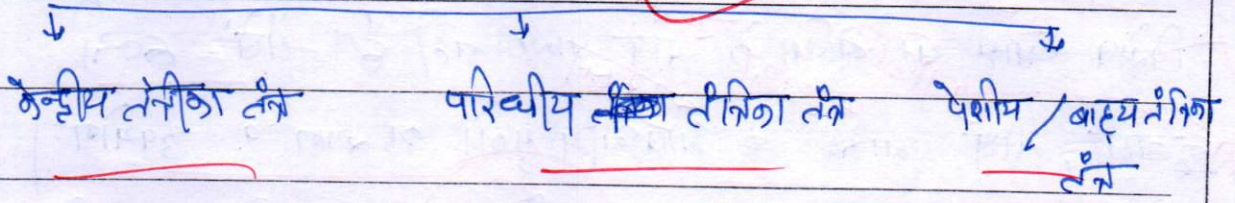 केन्द्रीय तंत्रीका तंत्र परिधीय तंत्रिका तंत्र पेशीय / बाह्य तंत्रिका
तंत्र